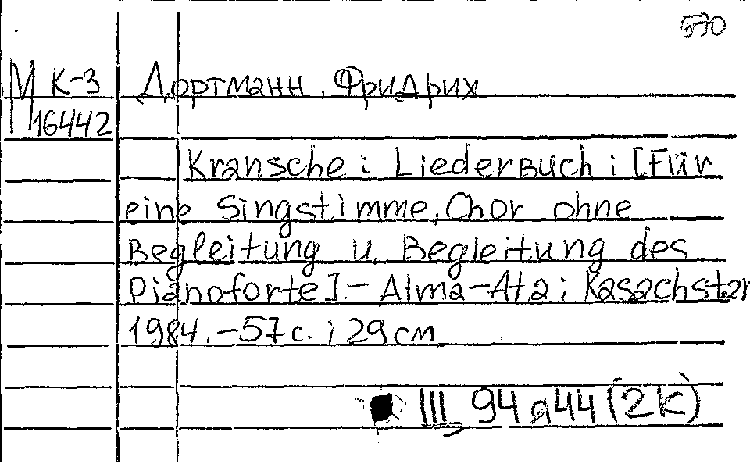 570
М К-3 Дортманн, Фридрих
16442
Kransche : Liederbuch : [Für
eine Singstimme, Chor ohne
Begleitung u. Begleitung des
Pianoforte]. - Alma-Ata : Kasachstan
1984. - 57 с. ; 29 см
III, 94 д 44 (2к)